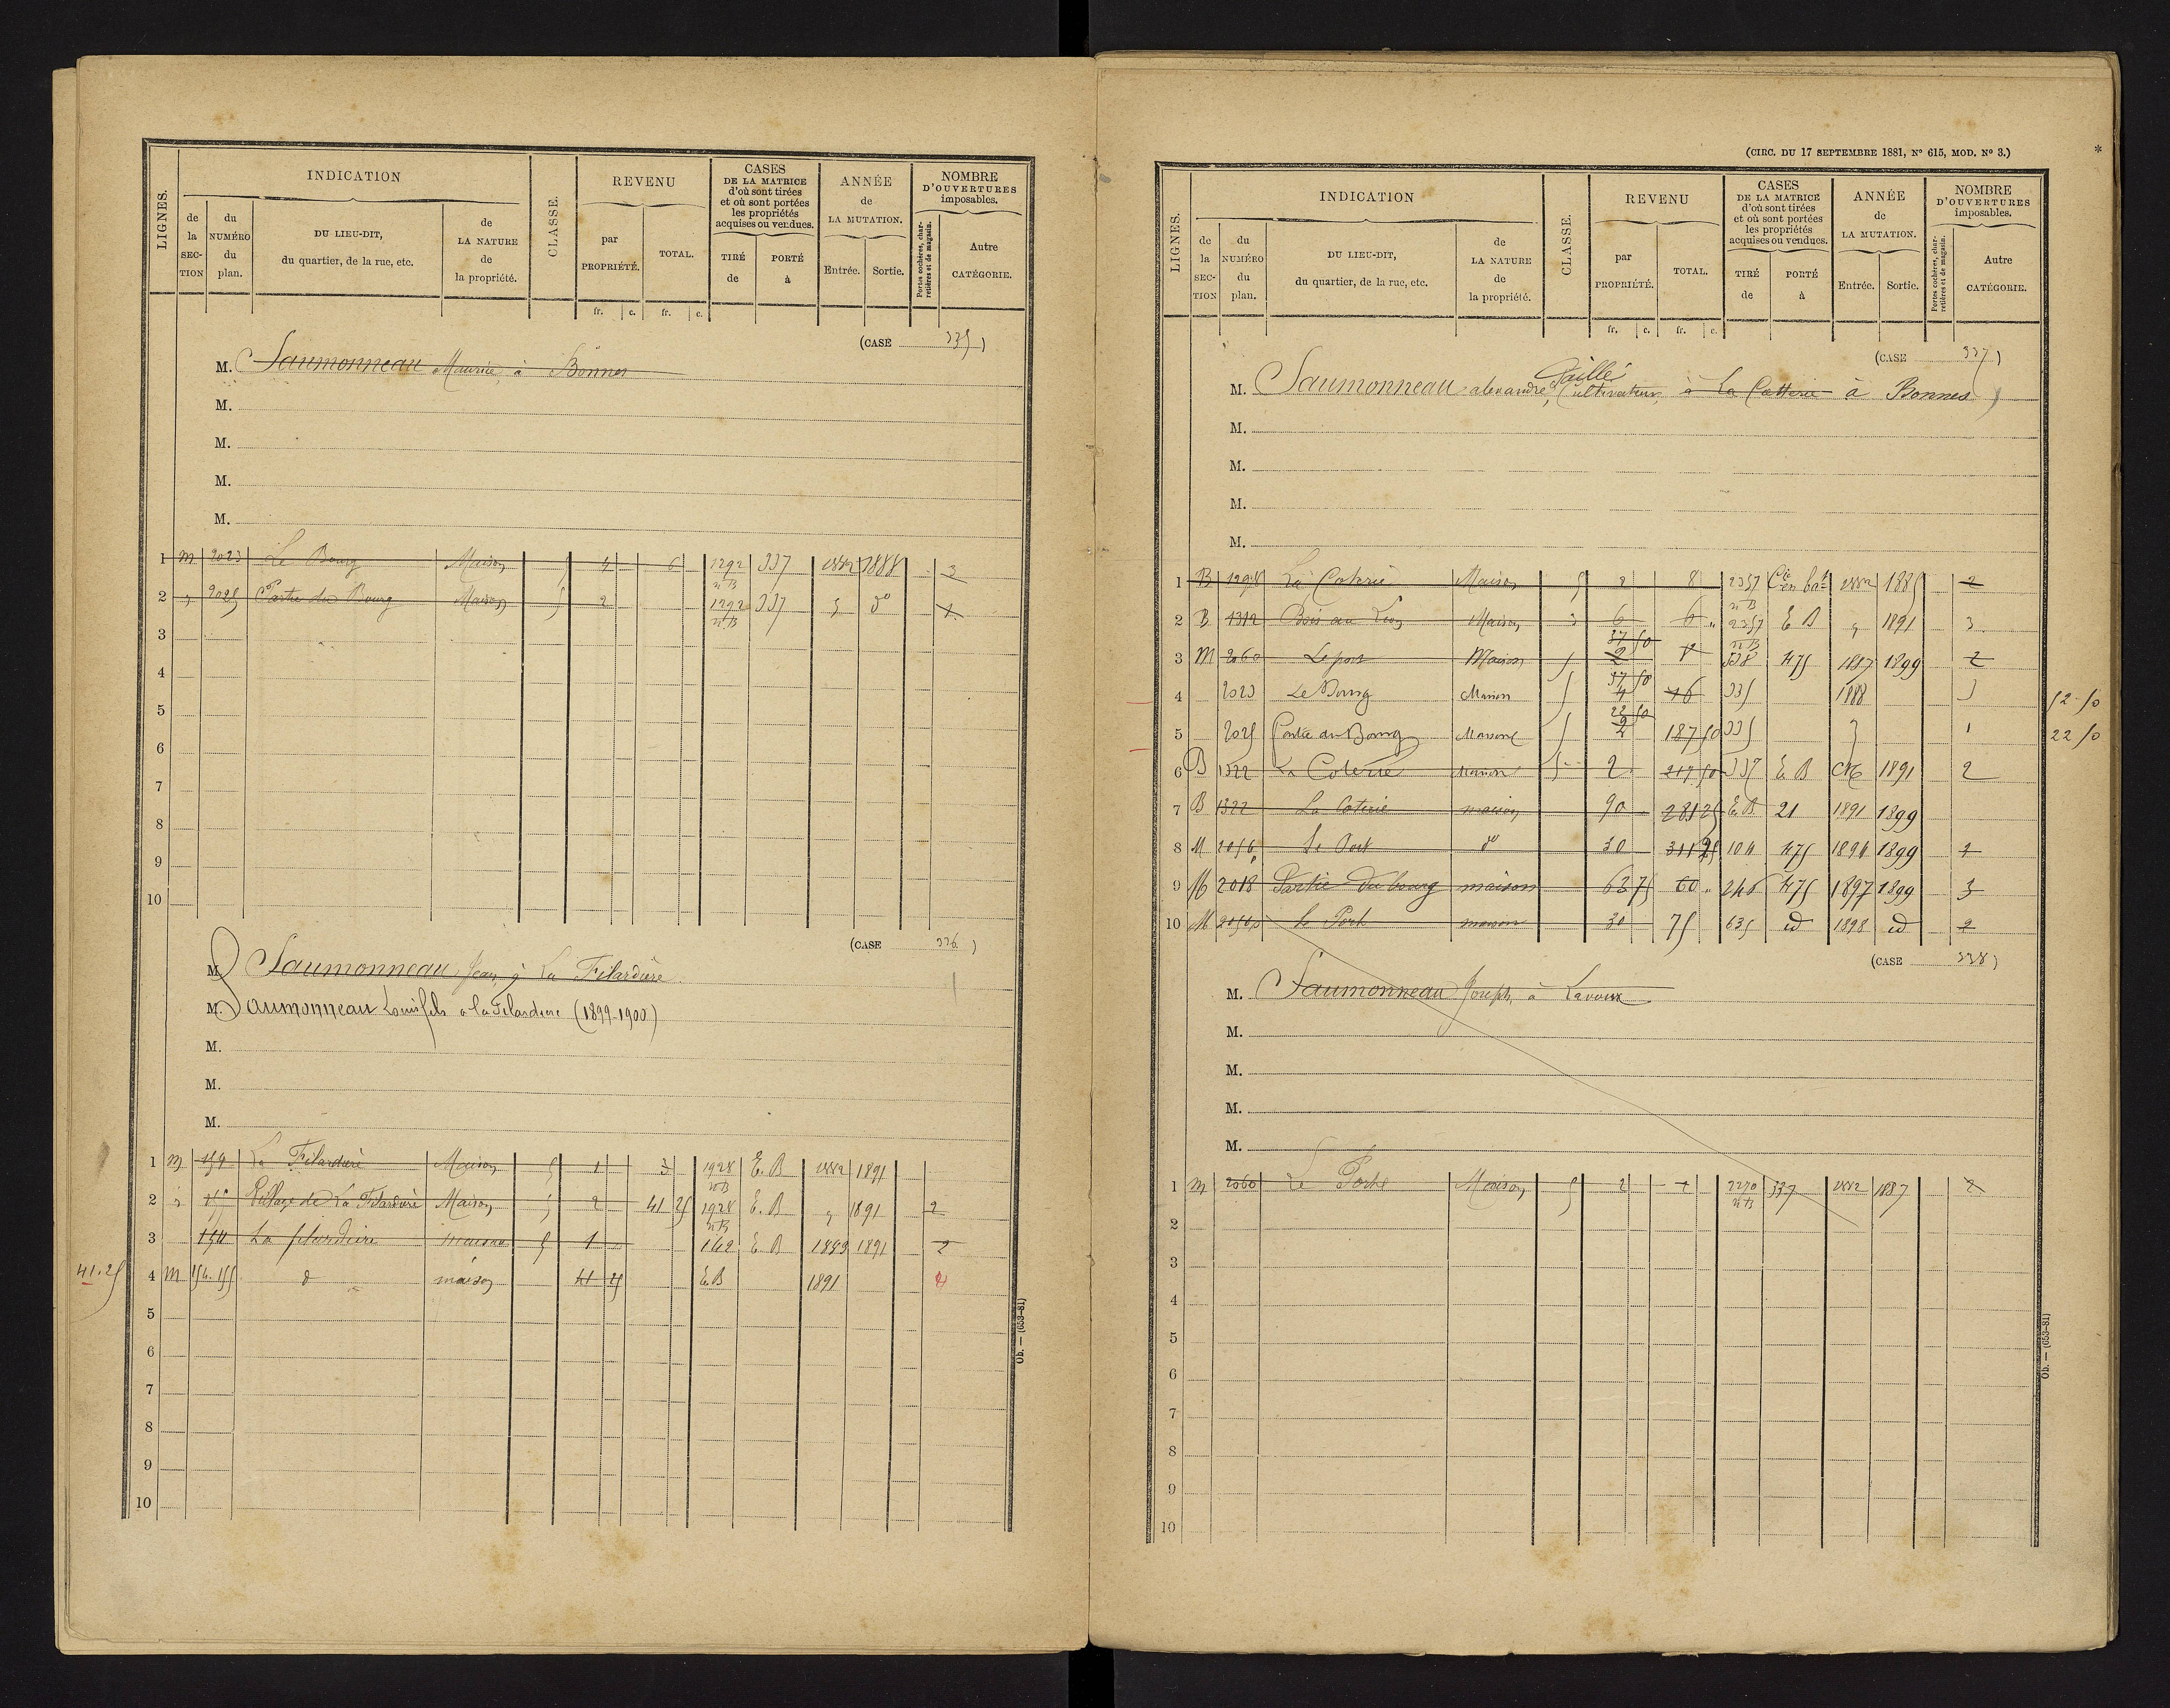 LIGNES.
INDICATION
de la SECTION
du NUMÉRO du plan.
DU LIEU-DIT, du quartier, de la rue, etc.
de LA NATURE de la propriété.
CLASSE.
REVENU
par PROPRIÉTÉ.
TOTAL.
fr. c. fr. c.
CASES DE LA MATRICE d'où sont tirées et où sont portées les propriétés acquises ou vendues.
TIRÉ de
PORTÉ à
ANNÉE de LA MUTATION.
Entrée. Sortie.
NOMBRE D'OUVERTURES imposables.
Portes cochères, charretières et de magasin.
Autre CATÉGORIE.
(CASE 335)
M. Saumonneau Maurice, à Bonnes
M.
M.
M.
M.
1 M 2023 Le Bourg Maison 5 4 6 1292 nB 337 1882 1888 3
2 " 2025 Partie du Bourg Maison 5 2 1292 nB 337 " do 1
3
4
5
6
7
8
9
10
(CASE 336)
M. Saumonneau Jean, à La Filardière
M. Saumonneau Louis fils à la Filardière (1899-1900)
M.
M.
M.
1 M 154 La Filardière Maison 5 1 3 1928 nB E.B 1882 1891
2 " Village de La Filardière Maison 5 2 41 25 1928 nB E.B " 1891 2
3 154 La filardière maison 5 1 162 E B 1889 1891 2
41.25
4 M 154.155 d maison 41 25 E.B 1891 4
5
6
7
8
9
10
Ob. — (653-81)
(CIRC. DU 17 SEPTEMBRE 1881, No 615, MOD. No 3.)
*
LIGNES.
INDICATION
de la SECTION
du NUMÉRO du plan.
DU LIEU-DIT, du quartier, de la rue, etc.
de LA NATURE de la propriété.
CLASSE.
REVENU
par PROPRIÉTÉ.
TOTAL.
fr. c. fr. c.
CASES DE LA MATRICE d'où sont tirées et où sont portées les propriétés acquises ou vendues.
TIRÉ de
PORTÉ à
ANNÉE de LA MUTATION.
Entrée. Sortie.
NOMBRE D'OUVERTURES imposables.
Portes cochères, charretières et de magasin.
Autre CATÉGORIE.
(CASE 337)
Caillé
M. Saumonneau alexandre, Cultivateur, à La Cotterie à Bonnes
M.
M.
M.
M.
1 B 1298 La Coterie Maison 5 2 8 2357 nB 1882 1885 2
2 B 1312 Maison 3 6 6 2357 nB E B " 1891 3
3 M 2060 Le port Maison 5 37 50 2 8 338 475 1887 1899 2
4 2023 Le Bourg Maison 5 37 50 4 16 335 1888 3 52 50
5 2025 Partie du Bourg Maison 5 22 50 2 187 50 335 " 1 22 50
6 B 1322 La Coterie Maison 5 2 217 50 337 E B 1891 2
7 B 1322 La Coterie maison 90 281 25 E.B 21 1891 1899
8 M 2056 Le Port do 30 311 25 104 475 1894 1899 1
9 M 2018 Partie du bourg maison 63 75 60 246 475 1897 1899 3
10 M 2056 le Port maison 30 75 635 id 1898 id 2
(CASE 338)
M. Saumonneau Joseph, à Lavoux
M.
M.
M.
M.
1 M 2060 Le Porte Maison 5 2 2270 nB 337 1882 1887 2
2
3
4
5
6
7
8
9
10
Ob. — (653-81)